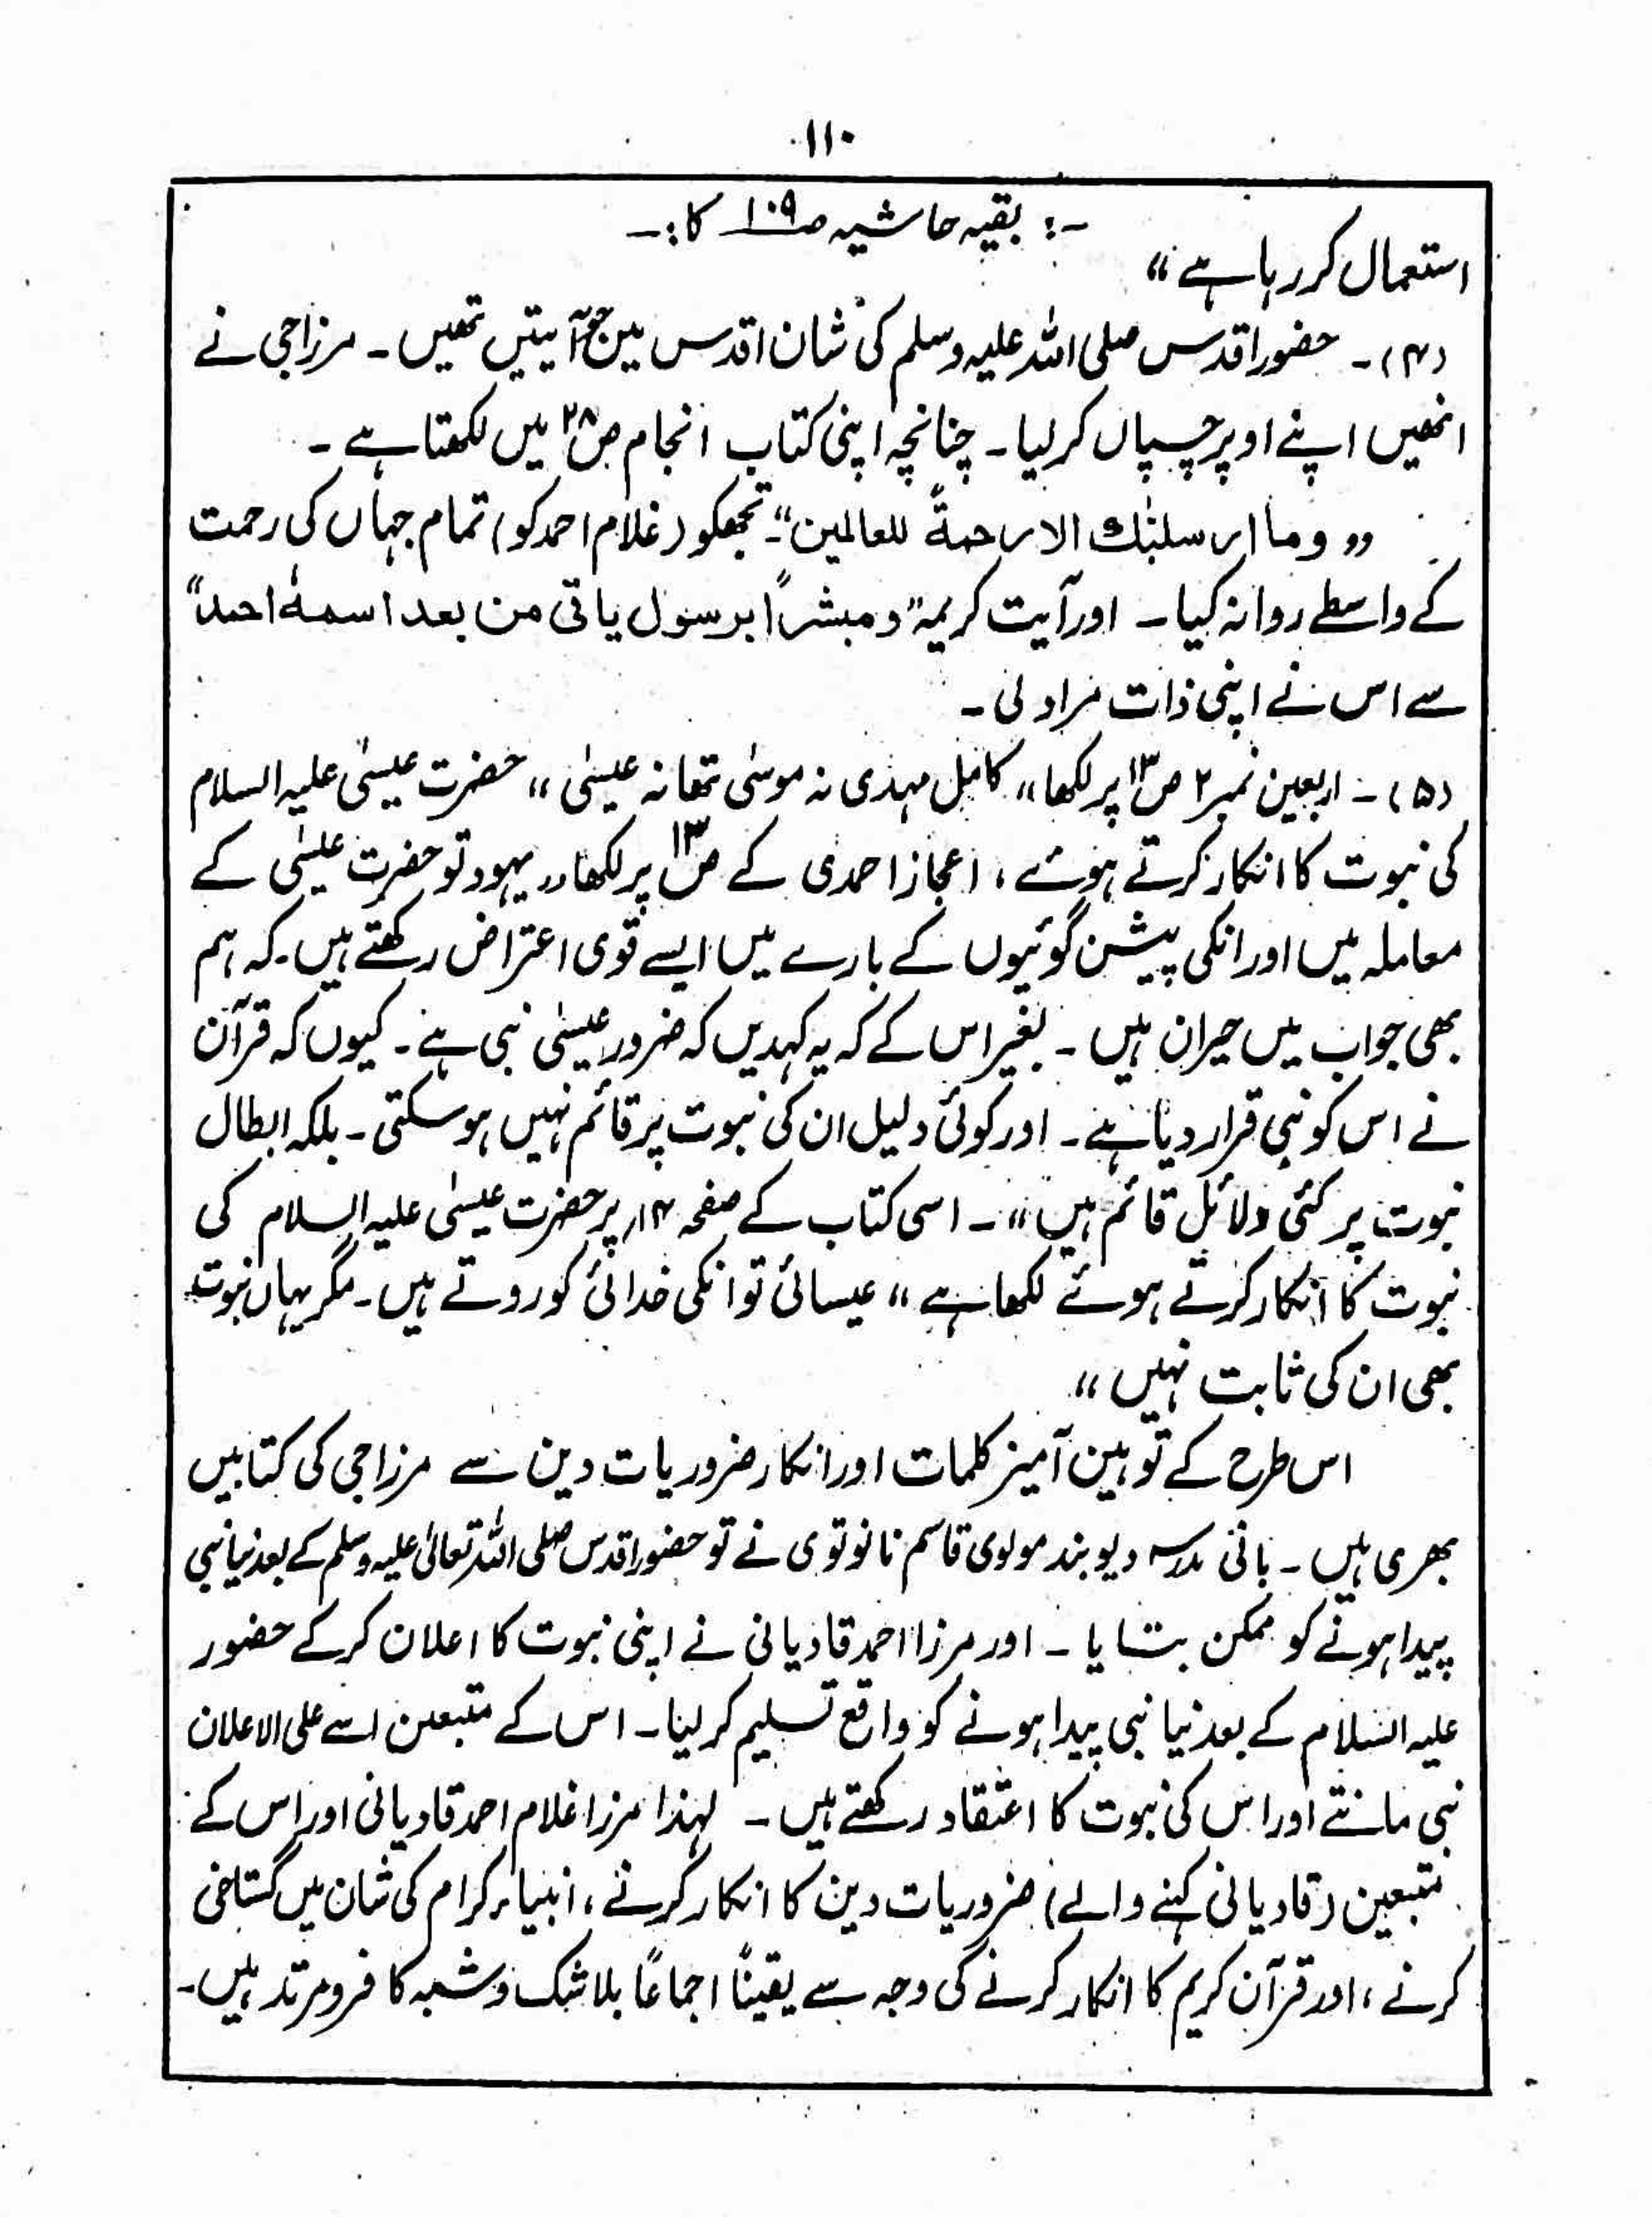 ۱۱۰
-: بقیہ حاشیہ صـ ۱۰۹ کا :-
استعمال کر رہا ہے ״
(۴) ـ حضور اقدس صلی اللہ علیہ وسلم کی شان اقدس میں جو آیتیں تھیں ۔ مرزا جی نے
انھیں اپنے اوپر چسپاں کر لیا ۔ چنانچہ اپنی کتاب انجام ص ۷۸ میں لکھتا ہے ۔
״ وما ارسلنٰك الا رحمةً للعالمین״۔ تجھکو (غلام احمد کو) تمام جہاں کی رحمت
کے واسطے روانہ کیا ۔ اور آیت کریمہ ״ومبشراً برسول یاتی من بعد اسمهٗ احمد״
سے اس نے اپنی ذات مراد لی ۔
(۵) ـ اربعین نمبر ۲ ص ۱۳ پر لکھا ״ کامل مہدی نہ موسٰی تھا نہ عیسٰی ״ حضرت عیسٰی علیہ السلام
کی نبوت کا انکار کرتے ہوئے ، اعجاز احمدی کے ص ۱۳ پر لکھا ״ یہود تو حضرت عیسٰی کے
معاملہ میں اور انکی پیشن گوئیوں کے بارے میں ایسے قوی اعتراض رکھتے ہیں ۔ کہ ہم
بھی جواب میں حیران ہیں ۔ بغیر اس کے کہ یہ کہدیں کہ ضرور عیسٰی نبی ہے ۔ کیوں کہ قرآن
نے اس کو نبی قرار دیا ہے ۔ اور کوئی دلیل ان کی نبوت پر قائم نہیں ہو سکتی ۔ بلکہ ابطال
نبوت پر کئی دلائل قائم ہیں ״ ۔ اسی کتاب کے صفحہ ۱۴ پر حضرت عیسٰی علیہ السلام کی
نبوت کا انکار کرتے ہوئے لکھا ہے ״ عیسائی تو انکی خدائی کو روتے ہیں ۔ مگر یہاں نبوت
بھی ان کی ثابت نہیں ״
اس طرح کے توہین آمیز کلمات اور انکار ضروریات دین سے مرزا جی کی کتابیں
بھری ہیں ۔ بانی مدرسہ دیوبند مولوی قاسم نانوتوی نے تو حضور اقدس صلی اللہ تعالیٰ علیہ وسلم کے بعد نیا نبی
پیدا ہونے کو ممکن بتایا ۔ اور مرزا احمد قادیانی نے اپنی نبوت کا اعلان کر کے حضور
علیہ السلام کے بعد نیا نبی پیدا ہونے کو واقع تسلیم کر لیا ۔ اس کے متبعین اسے علی الاعلان
نبی مانتے اور اس کی نبوت کا اعتقاد رکھتے ہیں ۔ لہذا مرزا غلام احمد قادیانی اور اس کے
متبعین (قادیانی کہنے والے) ضروریات دین کا انکار کرنے ، انبیاء کرام کی شان میں گستاخی
کرنے ، اور قرآن کریم کا انکار کرنے کی وجہ سے یقیناً اجماعاً بلا شک و شبہ کافر و مرتد ہیں ۔